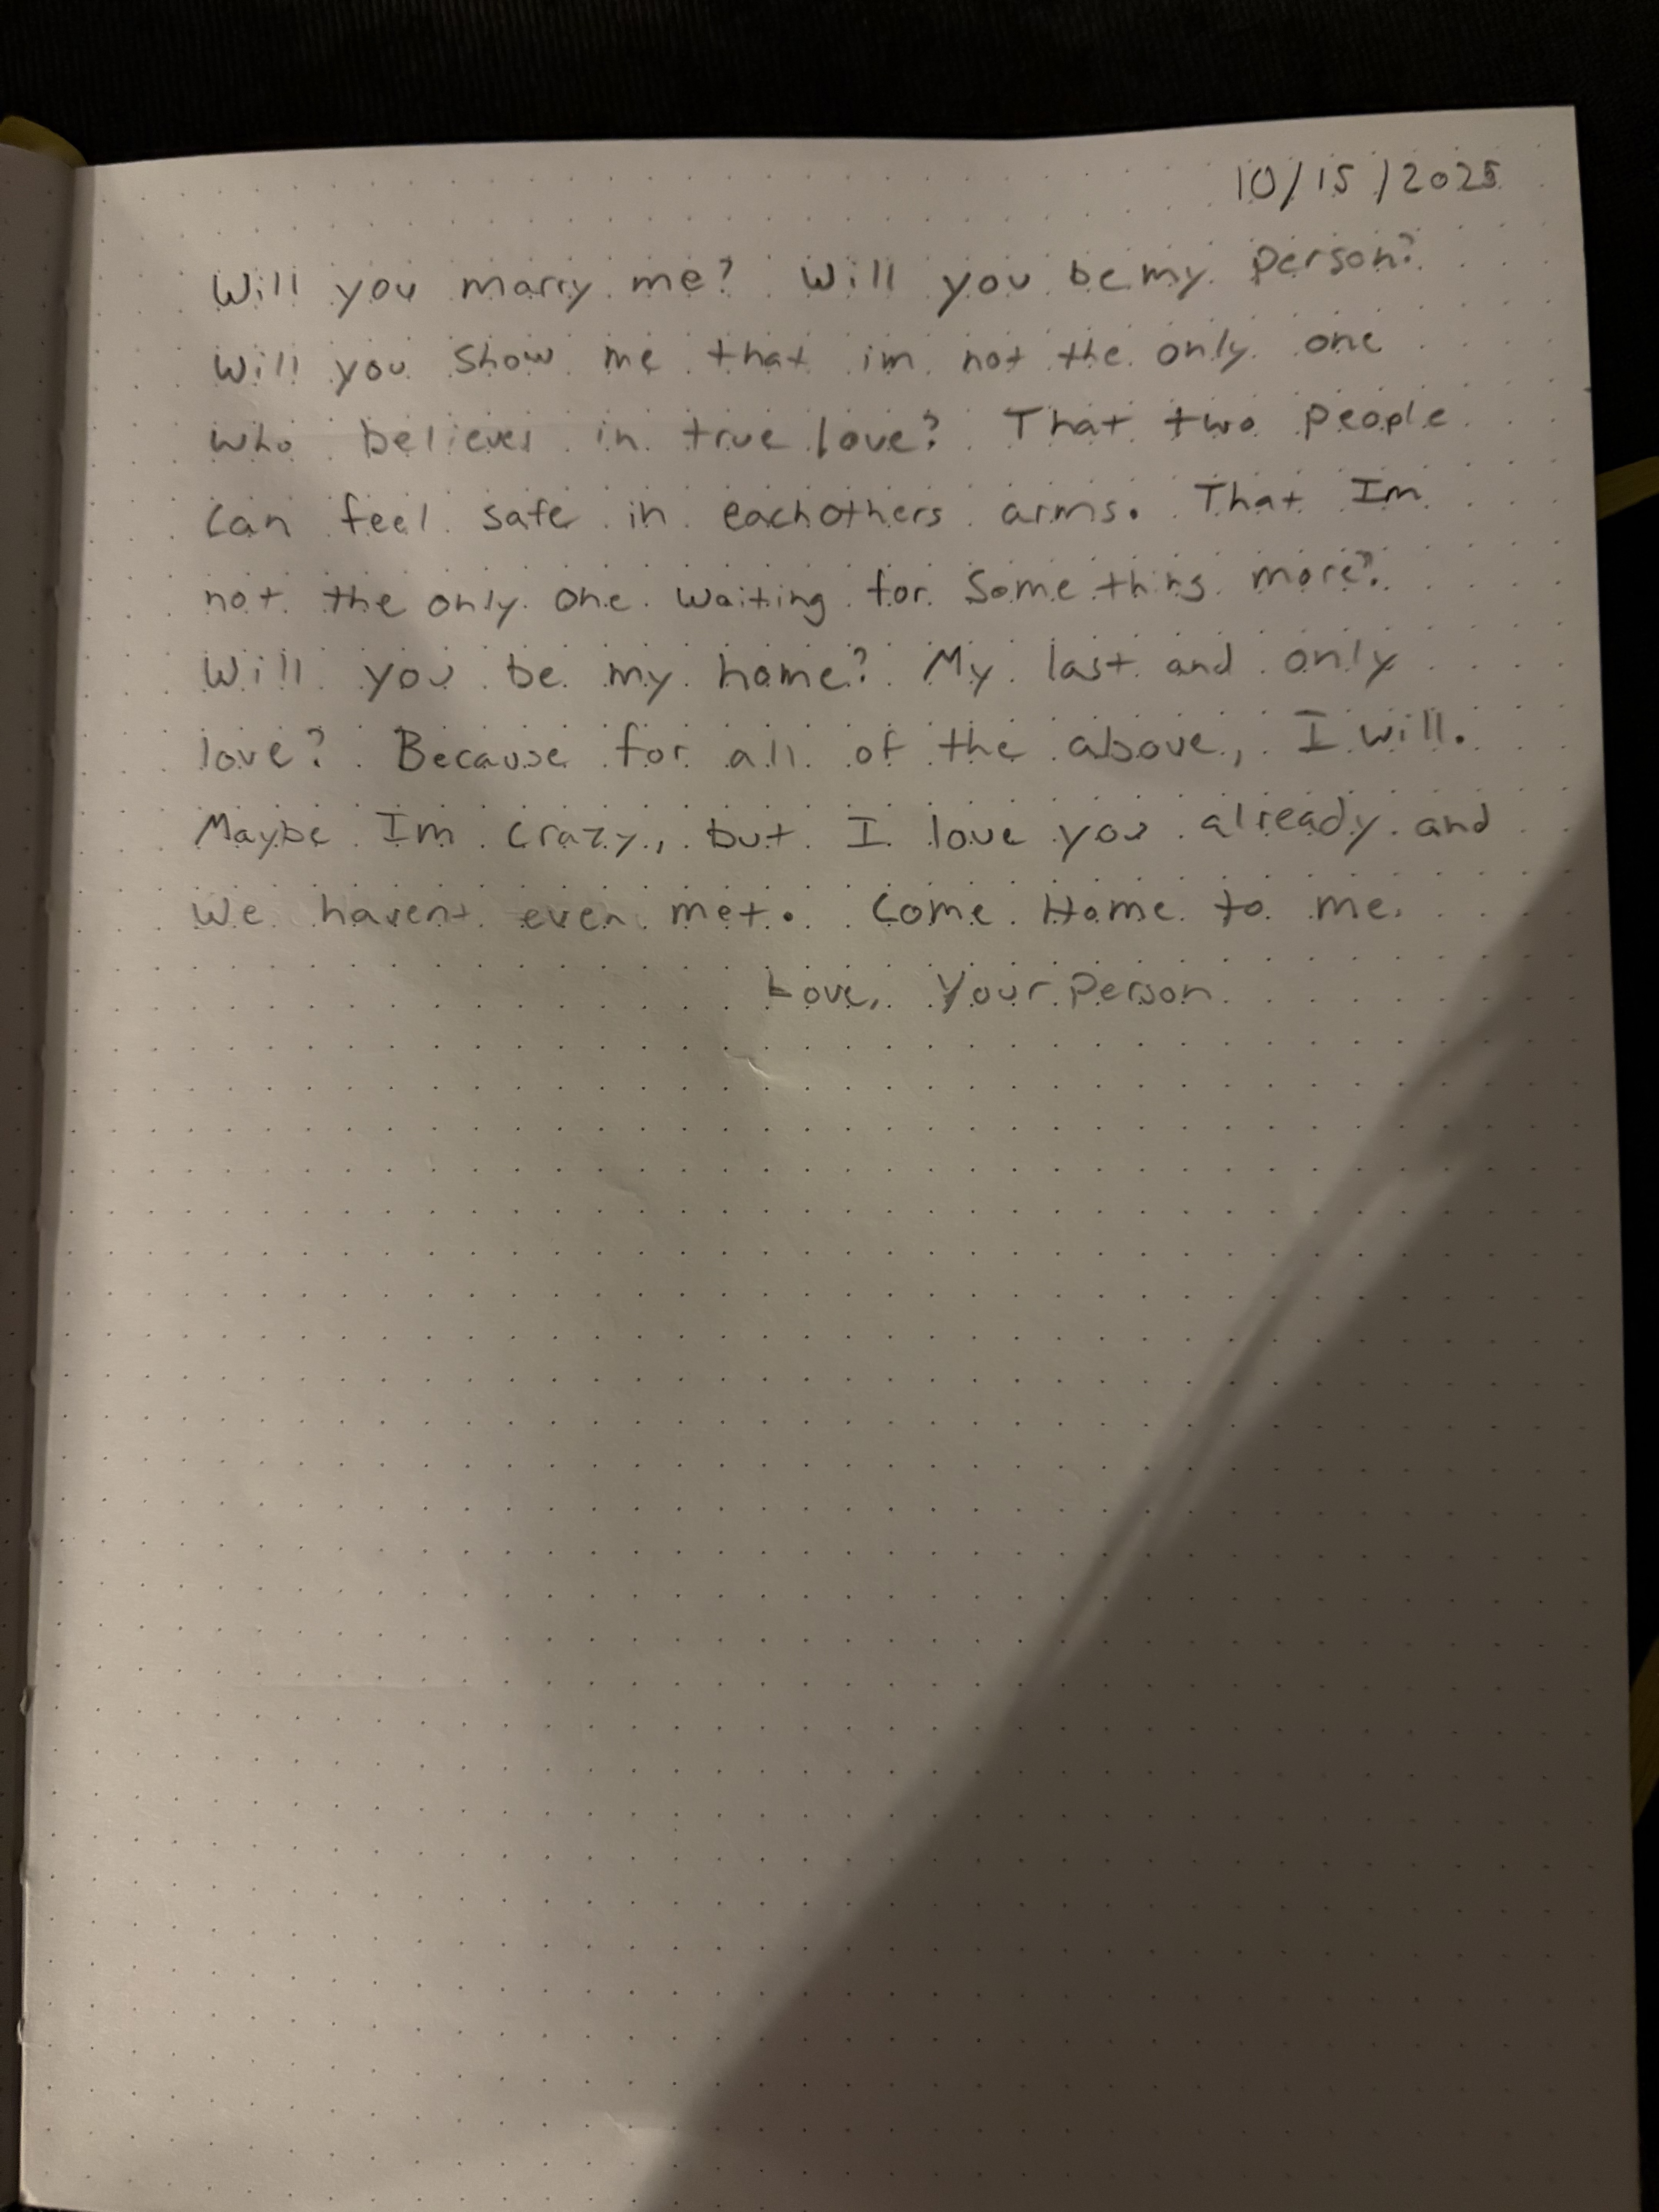 10/15/2025
Will you marry me? Will you be my person?
Will you show me that im not the only one
who believes in true love? That two people
can feel safe in eachothers arms. That Im
not the only one waiting for something more?
Will you be my home? My last and only
love? Because for all of the above, I will.
Maybe Im crazy, but I love you already and
We havent even met. Come Home to me.
Love, Your Person